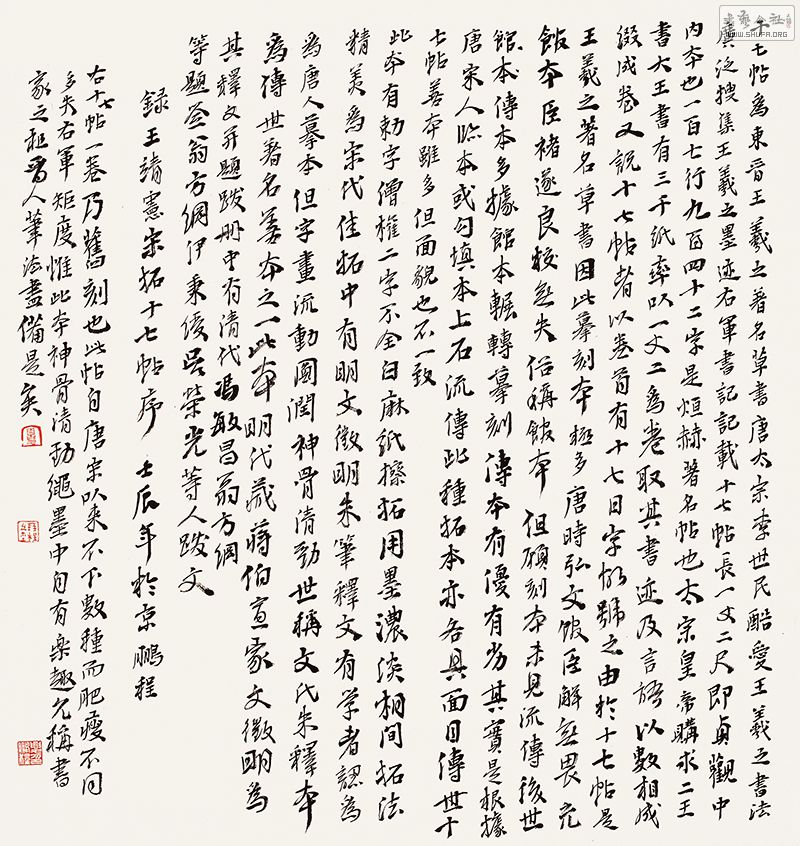 十七帖為東晉王羲之著名草書唐太宗李世民酷愛王羲之書法
廣泛搜集王羲之墨迹右軍書記記載十七帖長一丈二尺即貞觀中
內本也一百七行九百四十二字是烜赫著名帖也太宗皇帝購求二王
書大王書有三千紙率以一丈二為卷取其書迹及言語以數相成
綴成卷又說十七帖者以卷首有十七日字故號之由於十七帖是
王羲之著名草書因此摹刻本極多唐時弘文館臣解無畏充
館本臣褚遂良校無失俗稱館本但願刻本未見流傳後世
館本傳本多據館本輾轉摹刻傳本有優有劣其實是根據
唐宋人臨本或勾填本上石流傳此種拓本亦各具面目傳世十
七帖善本雖多但面貌也不一致
此本有勅字僧權二字不全白麻紙擦拓用墨濃淡相間拓法
精美為宋代佳拓中有明文徵明朱筆釋文有学者認為
為唐人摹本但字畫流動圓潤神骨清勁世稱文氏朱釋本
為傳世著名善本之一此本明代藏蔣伯宣家文徵明為
其釋文并題跋册中有清代馮敏昌翁方綱
等題簽翁方綱伊秉綬吳榮光等人跋文
錄王靖憲宋拓十七帖序 壬辰年於京鵬程
右十七帖一卷乃舊刻也此帖自唐宋以來不下數種而肥瘦不同
多失右軍矩度惟此本神骨清勁繩墨中自有樂趣允稱書
家之祖晉人筆法盡備是矣
WWW.SHUFA.ORG